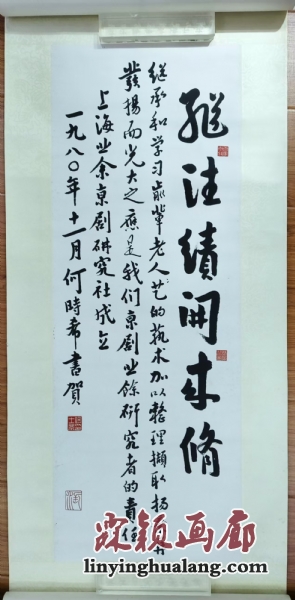 継往績開来脩
继承和学习前辈老人艺的蓺术加以整理擷取揚
發揚而光大之應是我们京剧业餘研究者的責任
上海业余京剧研究社成立
一九八〇年十一月何時希書賀
霖颖画廊
linyinghualang.com